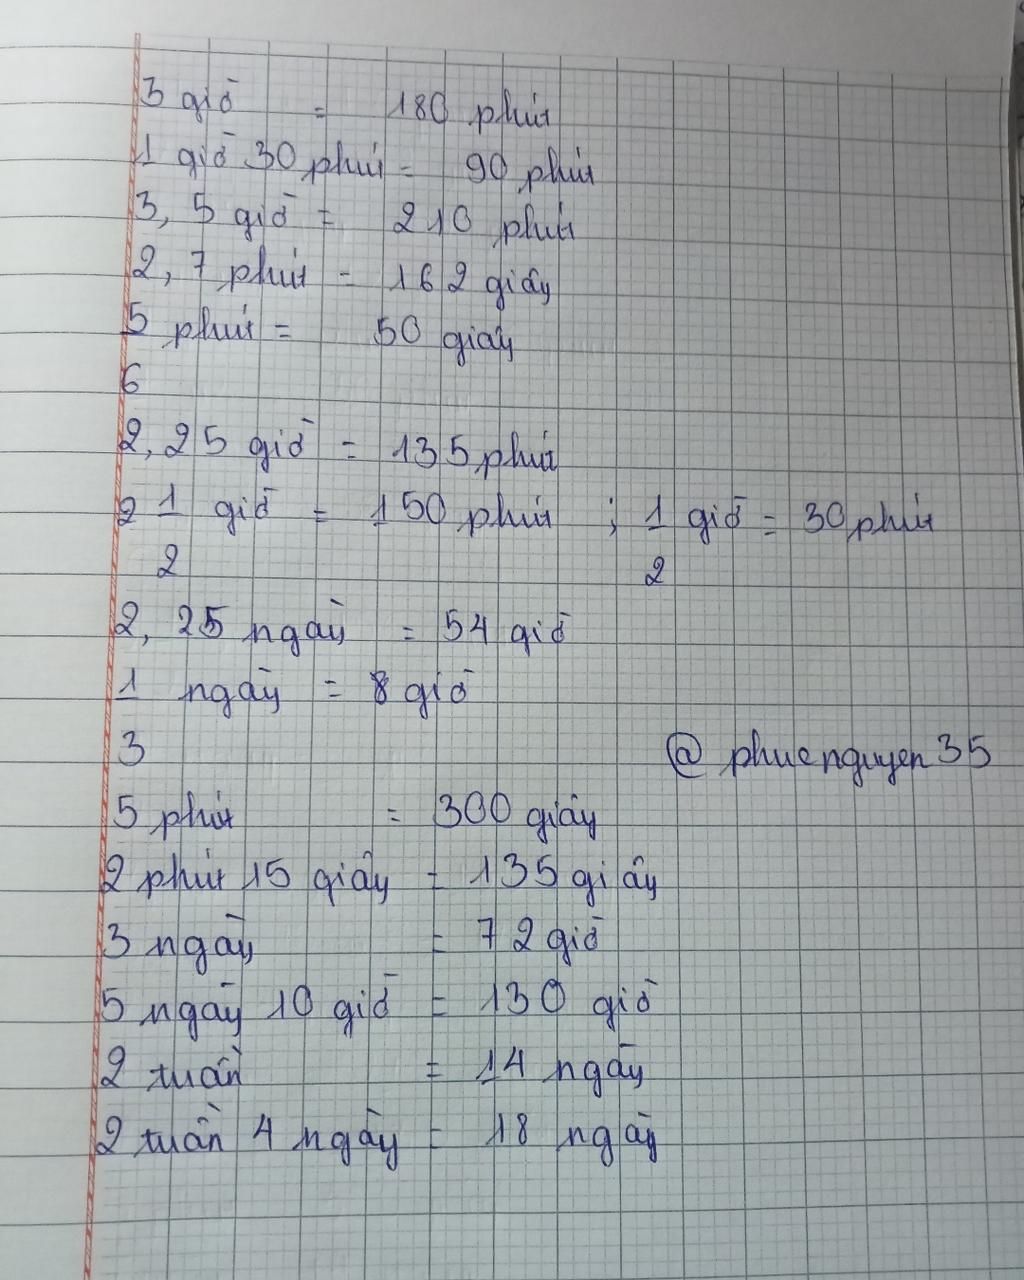 3 giờ = 180 phút
1 giờ 30 phút = 90 phút
3, 5 giờ = 210 phút
2, 7 phút = 162 giây
5 phút = 50 giây
6
2, 25 giờ = 135 phút
2 1 giờ = 150 phút ; 1 giờ = 30 phút
2 2
2, 25 ngày = 54 giờ
1 ngày = 8 giờ
3 @ phucnguyen35
5 phút = 300 giây
2 phút 15 giây = 135 giây
3 ngày = 72 giờ
5 ngày 10 giờ = 130 giờ
2 tuần = 14 ngày
2 tuần 4 ngày = 18 ngày